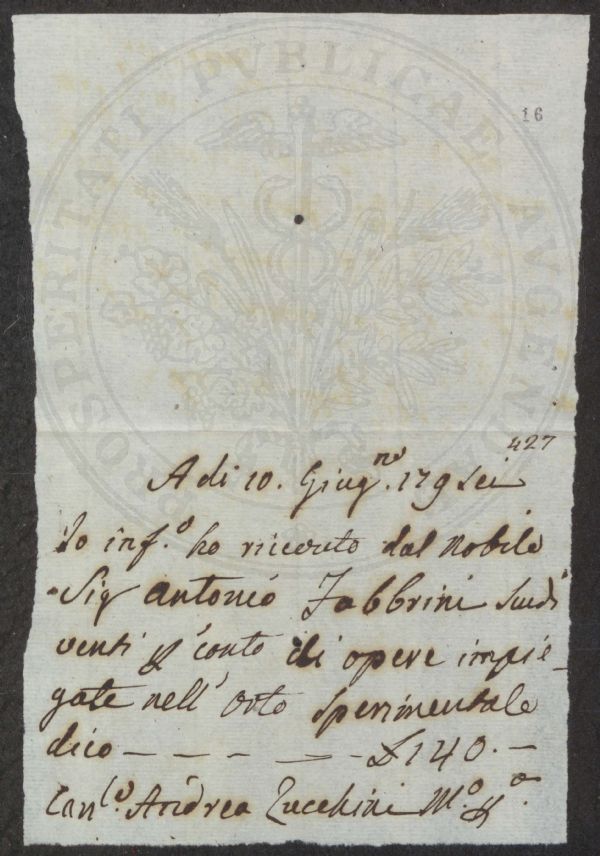 PROSPERITATI PVBLICAE AVGENDAE
16
427
A di 10. Giug.no 179sei
Io inf.o ho riceuto dal Nobile
Sig Antonio Fabbrini Scudi
venti p conto di opere impie-
gate nell' Orto sperimentale
dico — — — — — £ 140. —
Can.co Andrea Zucchini M.o p.o